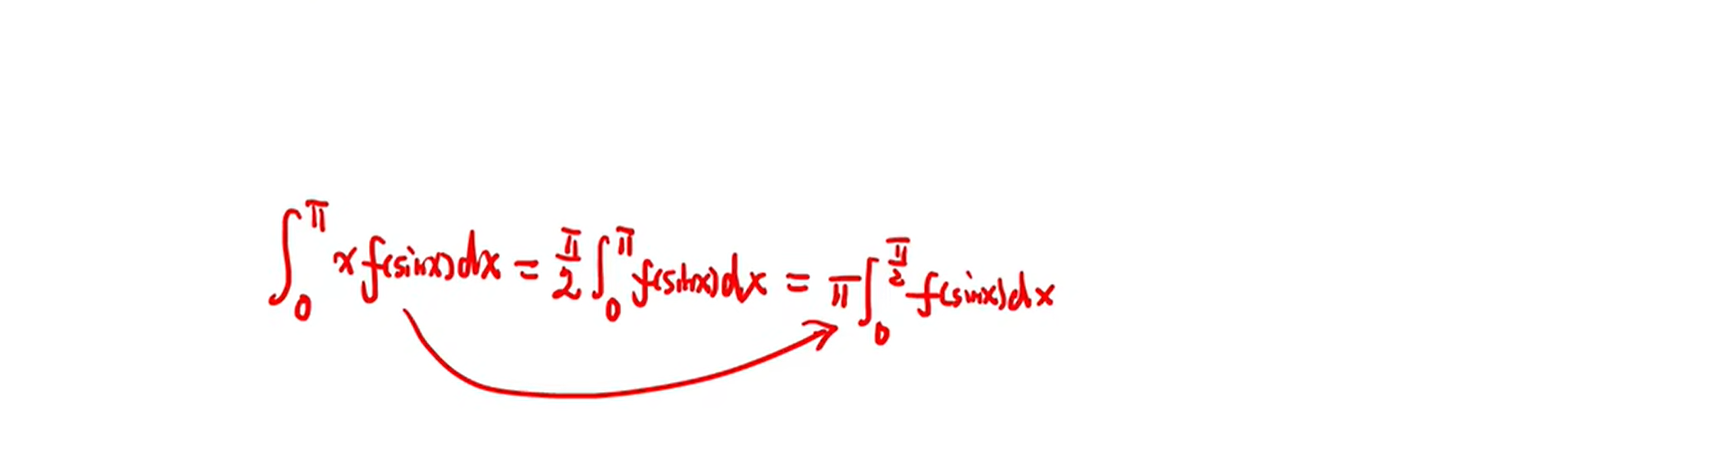 ∫₀^π x f(sinx)dx = π/2 ∫₀^π f(sinx)dx = π ∫₀^(π/2) f(sinx)dx